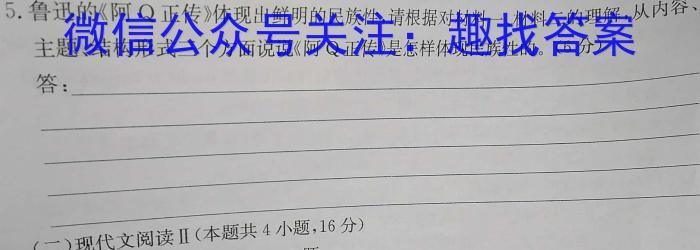 5.鲁迅的《阿Q正传》体现出鲜明的民族性,请根据对材料一、材料二的理解,从内容、
微信公众号关注：趣找答案
主题、结构形式三个方面说说《阿Q正传》是怎样体现民族性的。(6分)
答:
(二)现代文阅读Ⅱ(本题共4小题,16分)